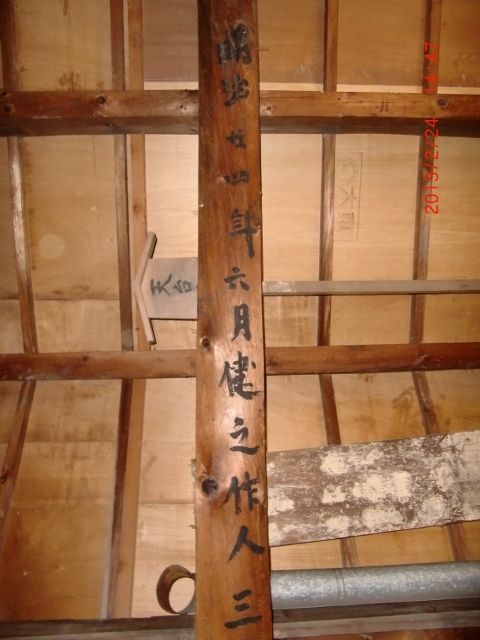 明治廿四年六月建之作人三
天台
大
2013/2/24 14:47